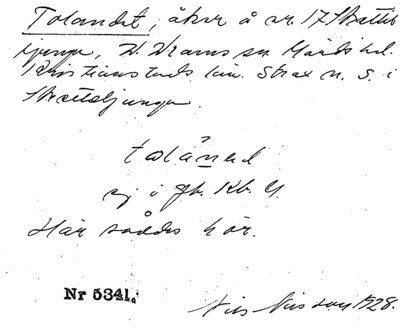 Tolandet, åker å nr 17 Skättel
junga, V. Vrams sn. Gärds hd.
Kristianstads län. Strax n. S. i
Skättiljunga.
talånad
ej i Jb. Kb. G.
Här såddes hör.
Nr 5341.
Nils Nilsson 1928.